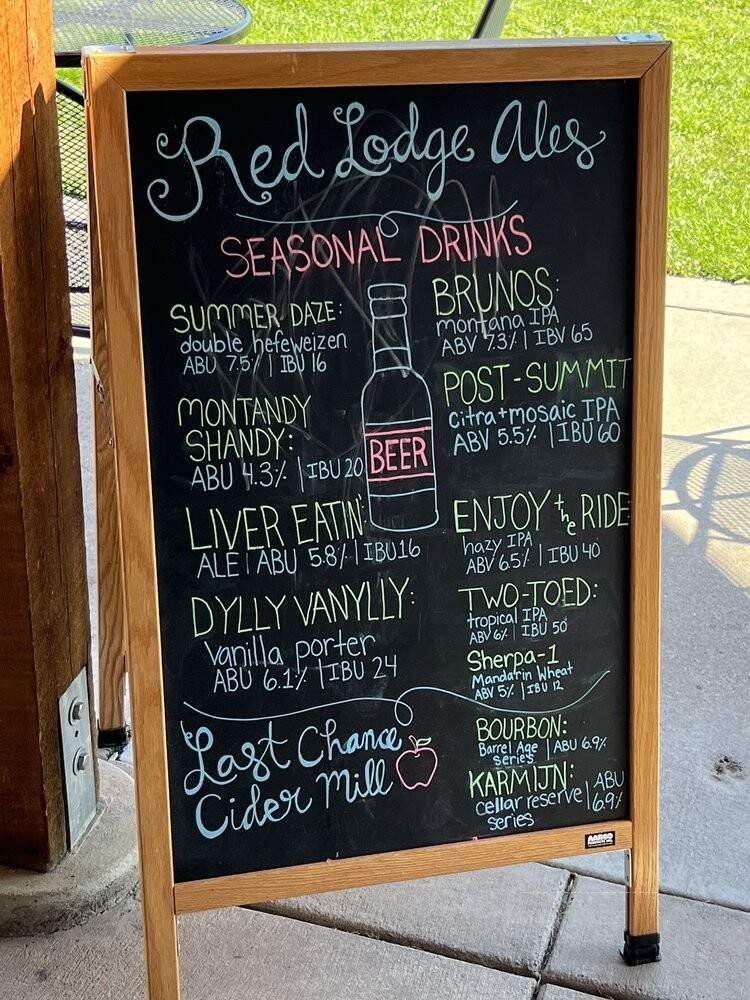 Red Lodge Ales
SEASONAL DRINKS
SUMMER DAZE:
double hefeweizen
ABU 7.5% | IBU 16
MONTANDY
SHANDY:
ABU 4.3% | IBU 20
LIVER EATIN'
ALE | ABU 5.8% | IBU 16
DYLLY VANYLLY:
Vanilla porter
ABU 6.1% | IBU 24
BEER
BRUNOS:
montana IPA
ABV 7.3% | IBV 65
POST-SUMMIT
citra+mosaic IPA
ABV 5.5% | IBU 60
ENJOY the RIDE
hazy IPA
ABV 6.5% | IBU 40
TWO-TOED:
tropical IPA
ABV 6% | IBU 50
Sherpa-1
Mandarin Wheat
ABV 5% | IBU 12
Last Chance
Cider Mill
BOURBON:
Barrel Age | ABU 6.9%
series
KARMIJN: | ABU
cellar reserve | 6.9%
series
AARCO